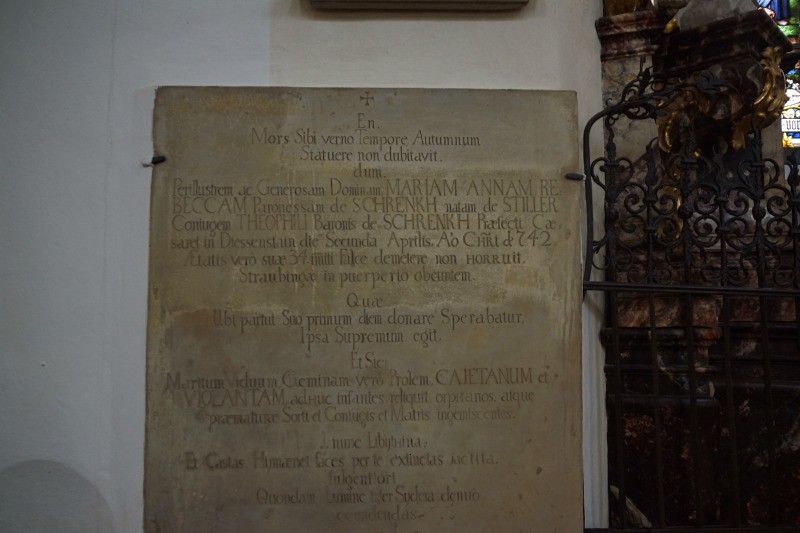 En.
Mors Sibi verno Tempore Autumnum
Statuere non dubitavit.
dum.
Perillustrem ac Generosam Dominam MARIAM ANNAM RE
BECCAM Baronessam de SCHRENKH natam de STILLER
Coniugem THEOPHILI Baronis de SCHRENKH Præfecti Cæ
sarei in Diessenstain die Secunda Aprilis. Aō Chri̅ti 742.
Ætatis verò suæ 34. imiti Falce demetere non HORRUIT.
Straubingæ in puerperio obeuntem.
Quæ
Ubi partui Suo primum diem donare Sperabatur.
Ipsa Supremum egit.
Et Sic.
Maritum Viduum, Geminam verò Prolem, CAJETANUM et
VIOLANTAM adhuc infantes reliquit, orphanos, atque
præmaturæ Sorti et Coniugis et Matris ingemiscentes.
I nunc Libitina.
Et Castas Hymenæi faces per te extinctas iactita.
fulgent
Quondam Lumine inter Sydera denuo
accendendas.
VOR